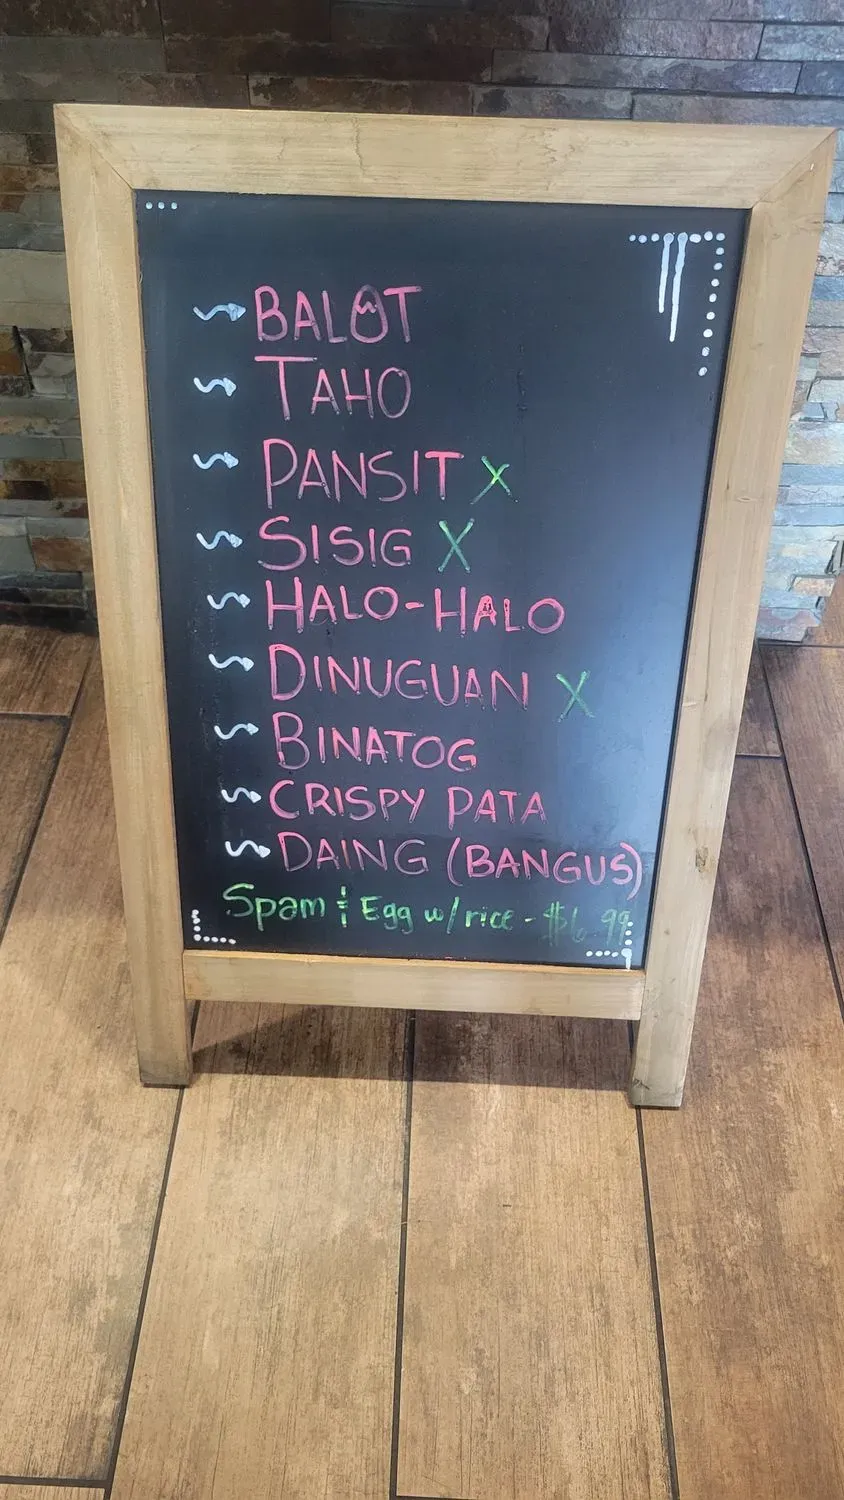 BALOT
TAHO
PANSIT X
SISIG X
HALO-HALO
DINUGUAN X
BINATOG
CRISPY PATA
DAING (BANGUS)
Spam & Egg w/ rice - $6.99